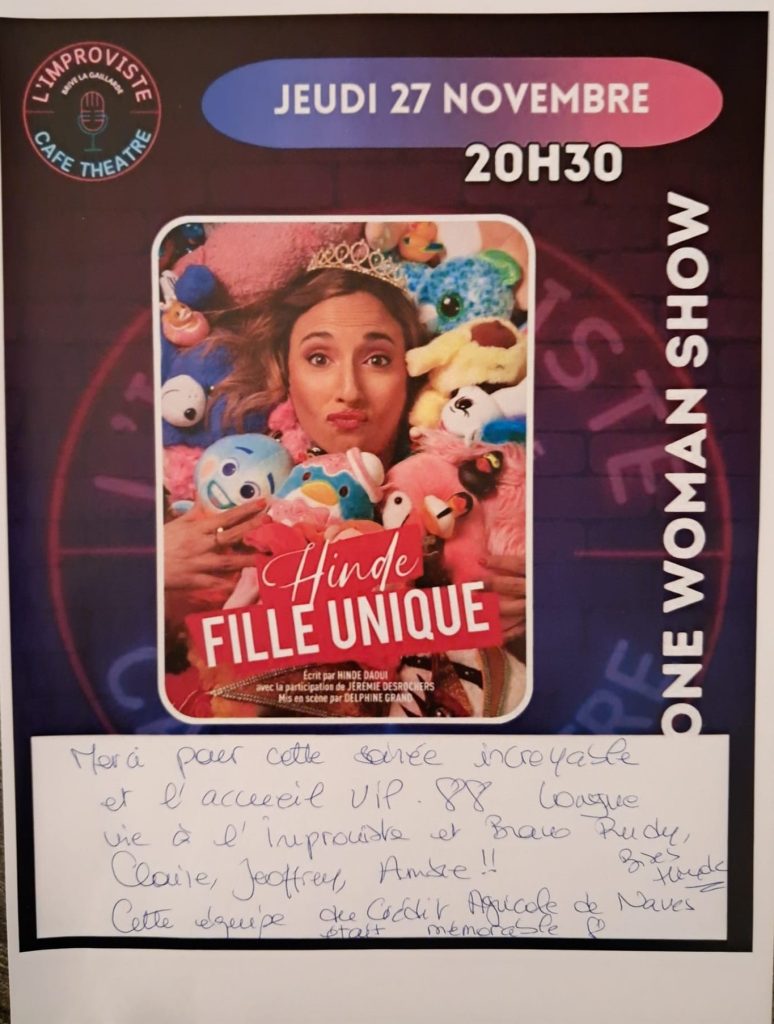 L'IMPROVISTE
BRIVE LA GAILLARDE
CAFE THEATRE
JEUDI 27 NOVEMBRE
20H30
ONE WOMAN SHOW
Hinde
FILLE UNIQUE
Écrit par HINDE DAOUI
avec la participation de JÉRÉMIE DESROCHERS
Mis en scène par DELPHINE GRAND
Merci pour cette soirée incroyable
et l'accueil VIP. Longue
vie à l'Improviste et Bravo Rudy,
Claire, Jeoffrey, Ambre !!
Bises
Hinde
Cette équipe du Crédit Agricole de Naves
était mémorable